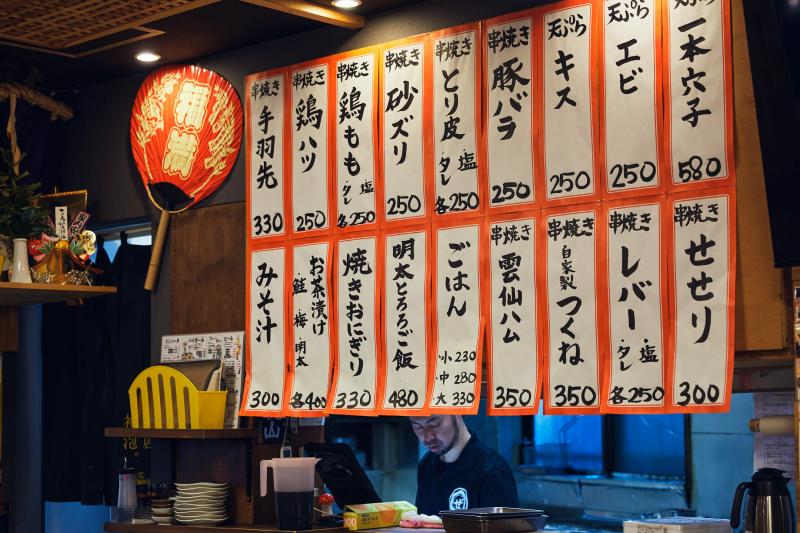 天ぷら
一本穴子
580
天ぷら
エビ
250
天ぷら
キス
250
串焼き
豚バラ
250
串焼き
とり皮
塩
タレ
各250
串焼き
砂ズリ
250
串焼き
鶏もも
塩
タレ
各250
串焼き
鶏ハツ
250
串焼き
手羽先
330
串焼き
せせり
300
串焼き
レバー
塩
タレ
各250
串焼き
自家製
つくね
350
串焼き
雲仙ハム
350
ごはん
小230
中280
大330
明太とろろご飯
480
焼きおにぎり
330
お茶漬け
鮭 梅 明太
各400
みそ汁
300